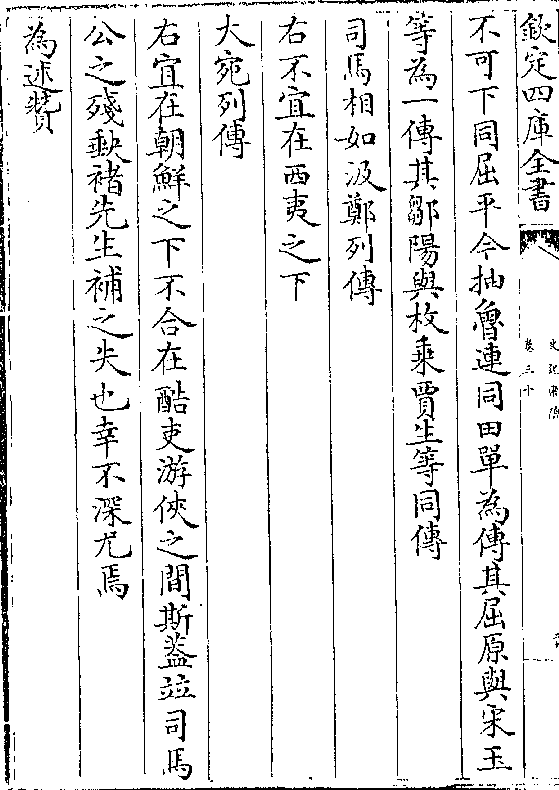 欽定四庫全書
史記索隱
卷三十
不可下同屈平今抽魯連同田單為傳其屈原與宋玉
等為一傳其鄒陽與枚乘賈生等同傳
司馬相如汲鄭列傳
右不宜在西夷之下
大宛列傳
右宜在朝鮮之下不合在酷吏游俠之間斯葢竝司馬
公之殘缺褚先生補之失也幸不深尤焉
為述贊